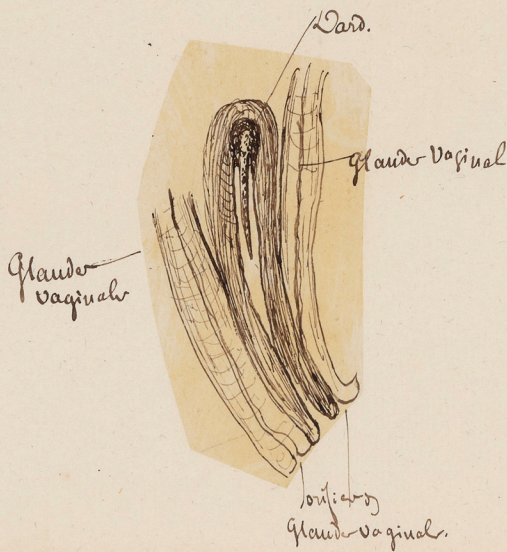 Dard.
Glandes Vaginal
Glandes
vaginales
orifices
Glandes vaginales.